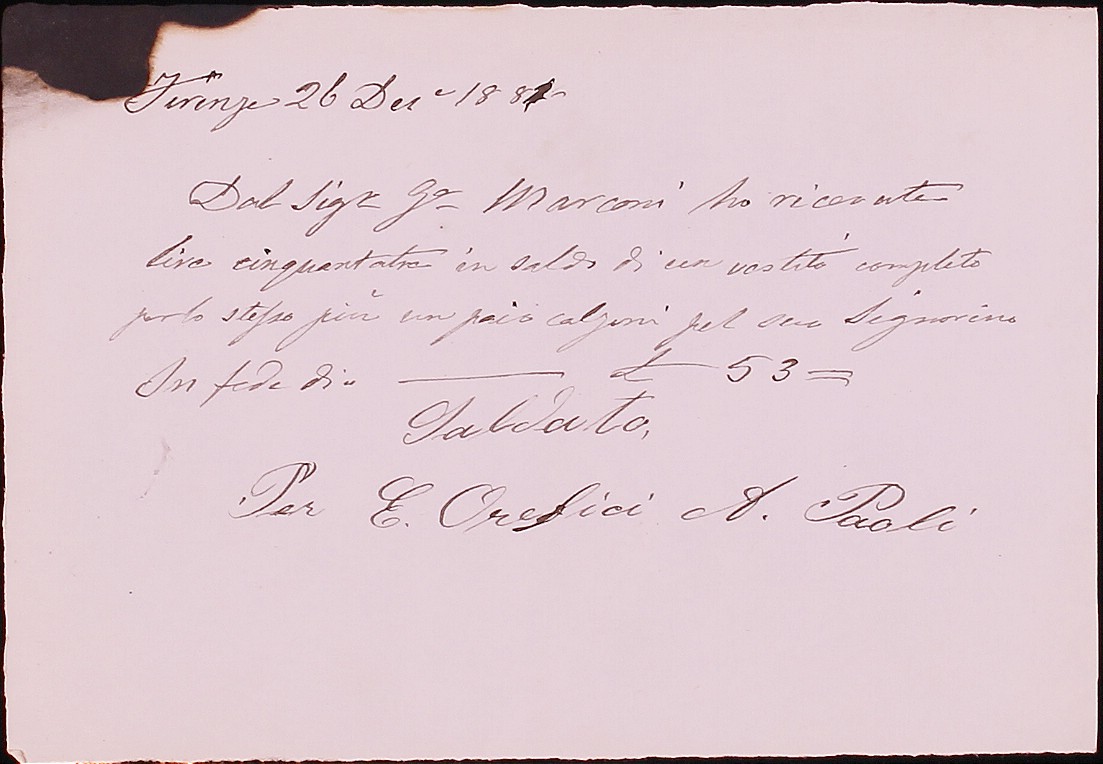 Firenze 26 Dec 1881
Dal Sigr Ge Marconi ho ricevute
lire cinquantatre in saldo di un vestito completo
per lo stesso più un paio calzoni pel suo Signorino
In fede di. £ 53 =
Saldato,
Per E. Orefici A. Paoli